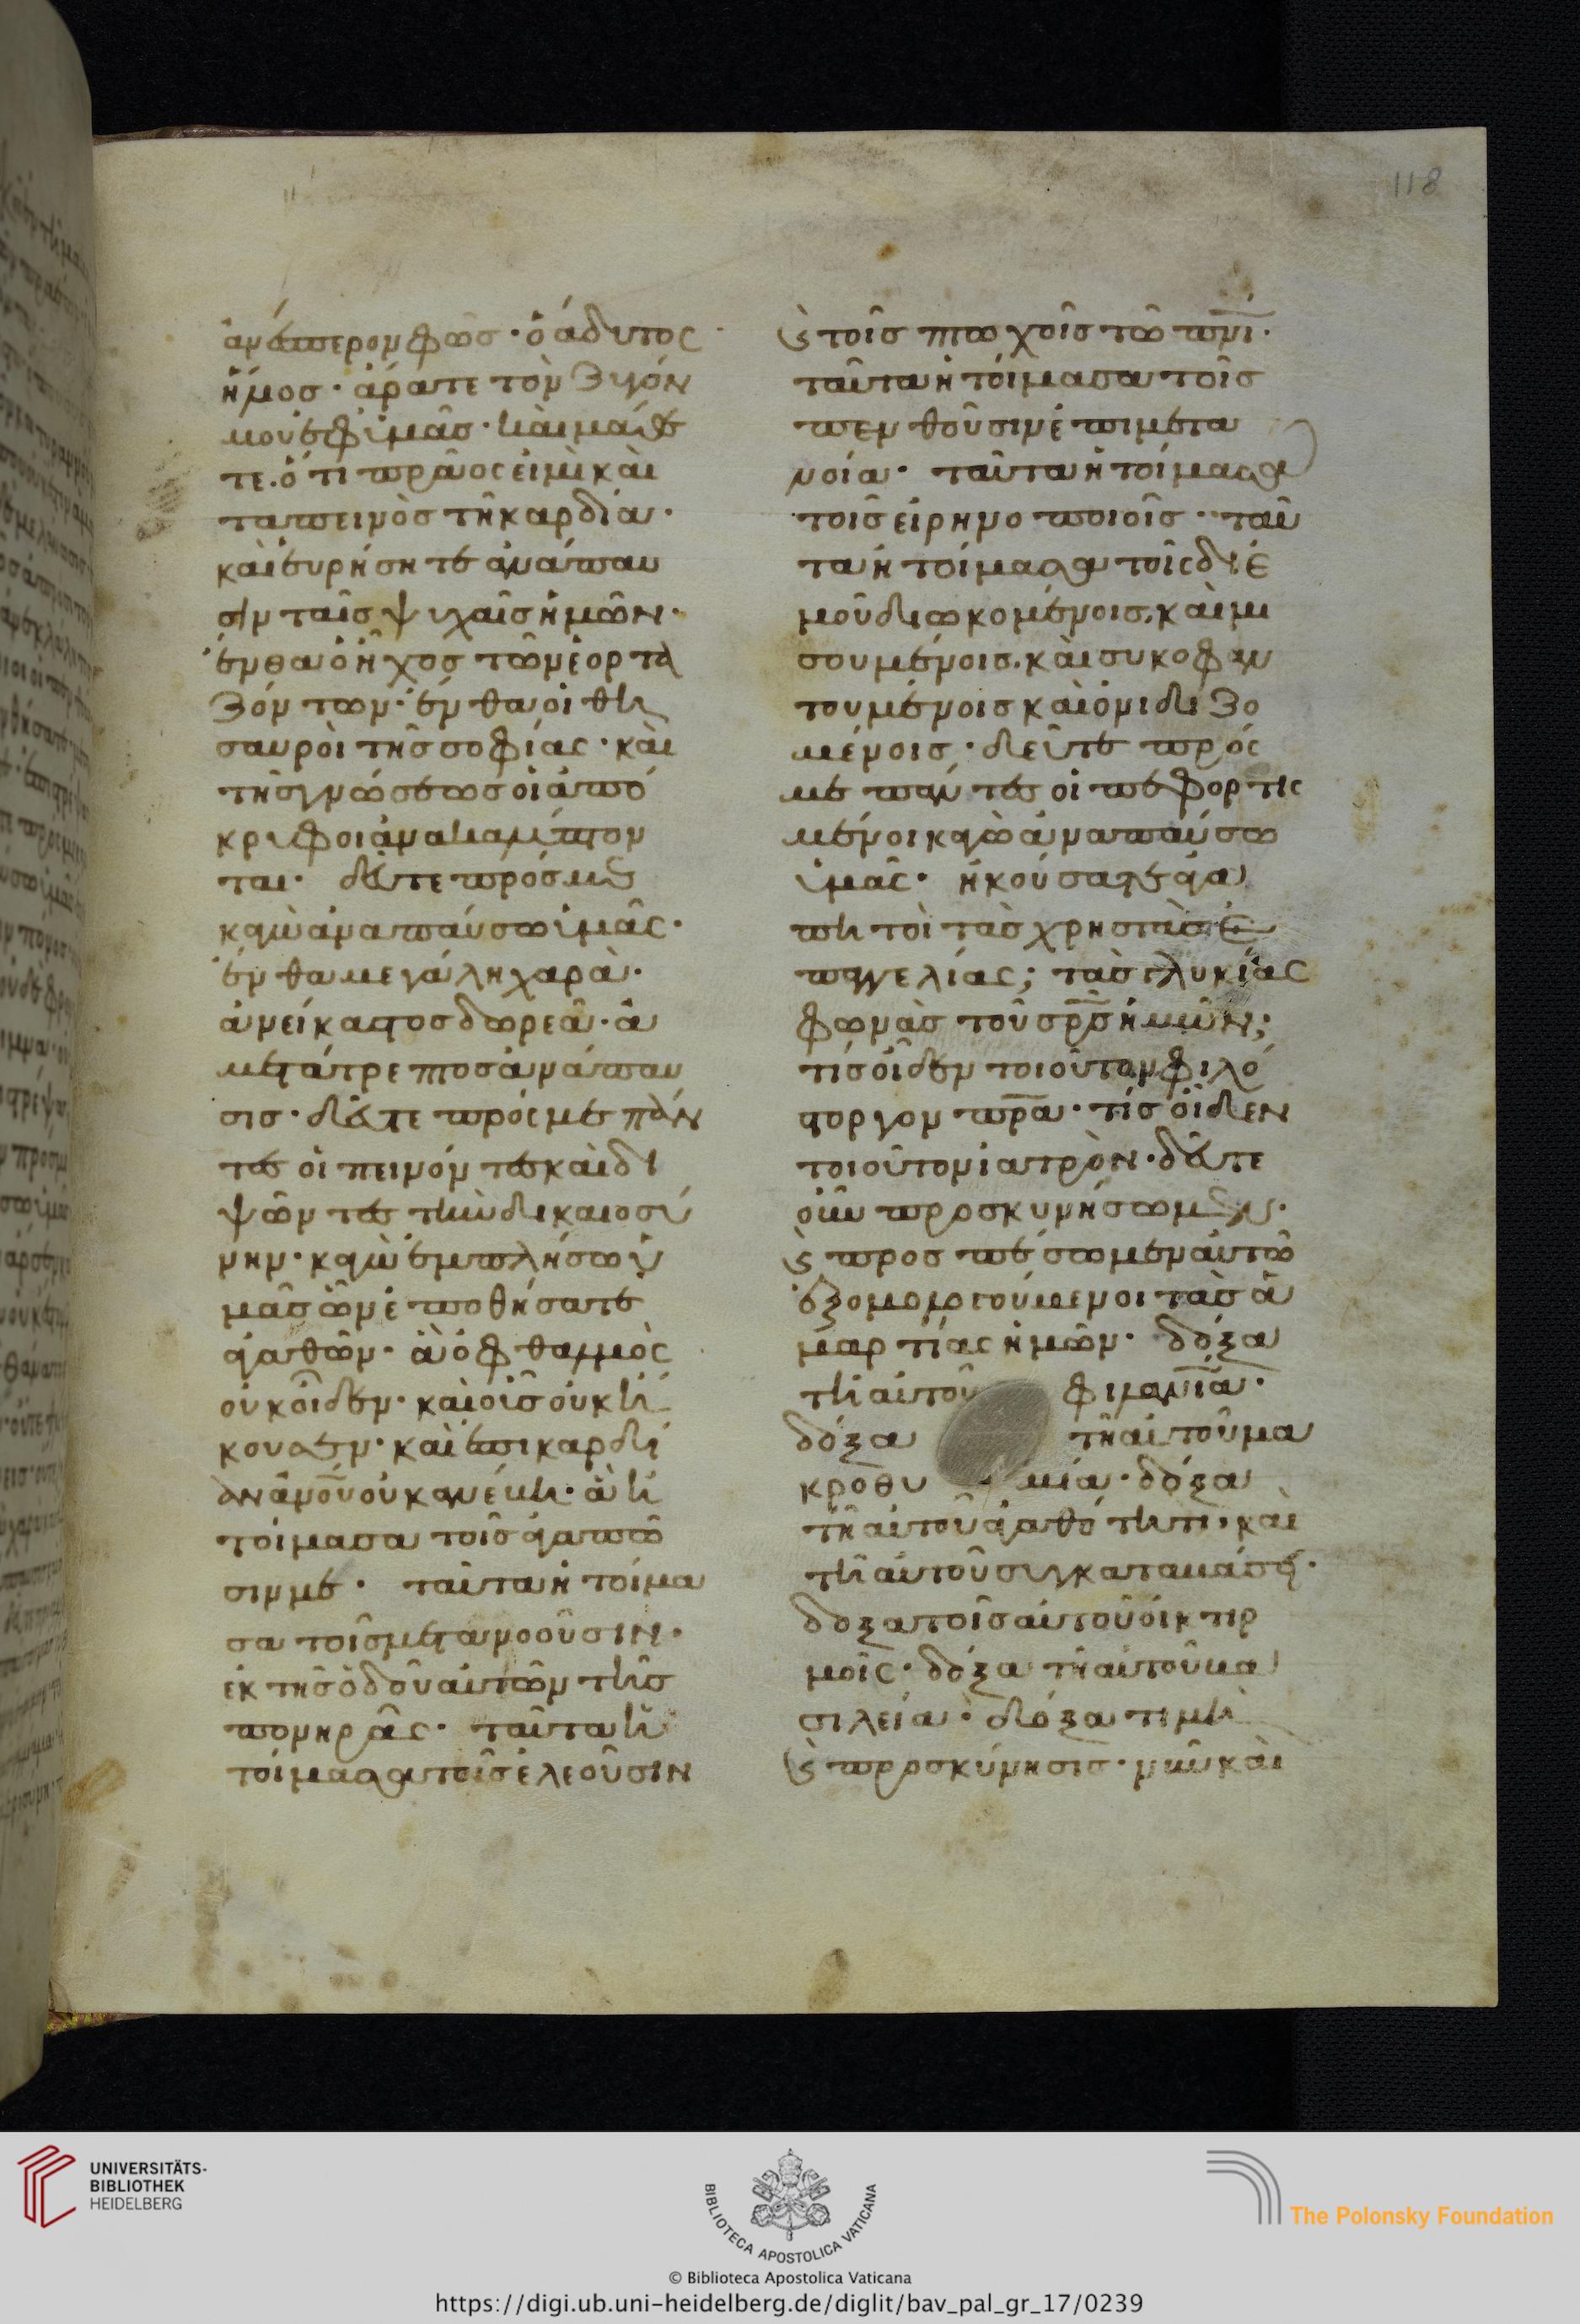 118
ἀνέσπερον φῶσ· ὁ ἄδυτος
ἥμοσ· ἄρατε τὸν ζυγόν
μου ἐφ ἱμᾶσ· καὶ μάθε
τε· ὅτι πρᾶος εἰμὶ καὶ
ταπεινὸσ τῆ καρδία·
καὶ εὑρήσητε ἀνάπαυ
σιν ταῖσ ψιχαῖσ ἡμῶν·
ἔνθα ὁ ἦχοσ τῶν ἑορτα
ζόντων· ἔνθα οἱ θη
σαυροὶ τῆσ σοφίας· καὶ
τῆσ γνώσεωσ οἱ ἀπό
κριφοι ἀνακαλίπτον
ται· δεῦτε πρόσ με
καγὼ ἀναπαύσω ἱμᾶς·
ἔνθα μεγάλη χαρὰ·
ἀνείκαστοσ δωρεᾶ· ἀ
μετάτρεπτοσ ἀνάπαυ
σισ· δεῦτε πρός με πάν
τεσ οἱ πεινόντεσ καὶ δι
ψῶντεσ τὴν δικαιοσύ
νην· καγὼ ἐμπλήσω ὑ
μᾶσ ὧν ἐποθήσατε
ἀγαθῶν· ἃ ὀφθαλμὸς
οὐκ οἶδεν· καὶ οἶσ οὐκ ἤ
κουσεν· καὶ ἐπι καρδί
αν ἀνου οὐκ ανέβη· ἃ ἡ
τοίμασα τοῖσ ἀγαπῶ
σιν με· ταῦτα ἡτοίμα
σα τοῖσ μετανοοῦσιν·
ἐκ τῆσ ὁδοῦ αὐτῶν τῆσ
πονηρᾶς· ταῦτα ἡ
τοίμασα τοῖσ ἐλεοῦσιν
ϗ τοῖσ πτωχοῖσ τῶ πνι·
ταῦτα ἡτοίμασα τοῖσ
πενθοῦσιν ἐπι μετα
νοία· ταῦτα ἡτοίμασα
τοῖσ εἰρηνοποιοῖσ· ταῦ
τα ἡτοίμασα τοῖς δι ἐ
μοῦ διωκομένοισ, καὶ μι
σουμένοισ. καὶ συκοφαν
τουμένοισ καὶ ὀνιδιζο
μένοισ· δεῦτε πρός
με παντεσ οἱ πεφορτισ
μένοι καγὼ ἀναπαύσω
ἱμᾶς· ἠκούσατε ἀγα
πητοὶ τὰσ χρηστὰσ ἐ
παγγελίας; τὰσ γλυκίας
φωνὰσ τοῦ σρσ ἡμῶν;
τίσ οἶδεν τοιοῦτον φιλό
στοργον πρα· τίσ οἶδεν
τοιοῦτον ἰατρὸν· δεῦτε
οὖν προσκυνήσωμεν·
ϗ προσπέσωμεν αὐτῶ
ἐξομολογούμενοι τὰσ ἁ
μαρτίας ἡμῶν· δόξα
τῆ αὐτοῦ φιλανια·
δόξα τῆ αὐτοῦ μα
κροθυ μία· δόξα
τῆ αὐτοῦ ἀγαθότητι· καὶ
τῆ αὐτοῦ συγκαταβάσει·
δοξα τοῖσ αὐτοῦ οἰκτιρ
μοῖς· δόξα τῆ αὐτοῦ βα
σιλεία· δόξα τιμὴ
ϗ προσκύνησισ· νῦν καὶ
UNIVERSITÄTS-
BIBLIOTHEK
HEIDELBERG
BIBLIOTECA APOSTOLICA VATICANA
The Polonsky Foundation
© Biblioteca Apostolica Vaticana
https://digi.ub.uni-heidelberg.de/diglit/bav_pal_gr_17/0239